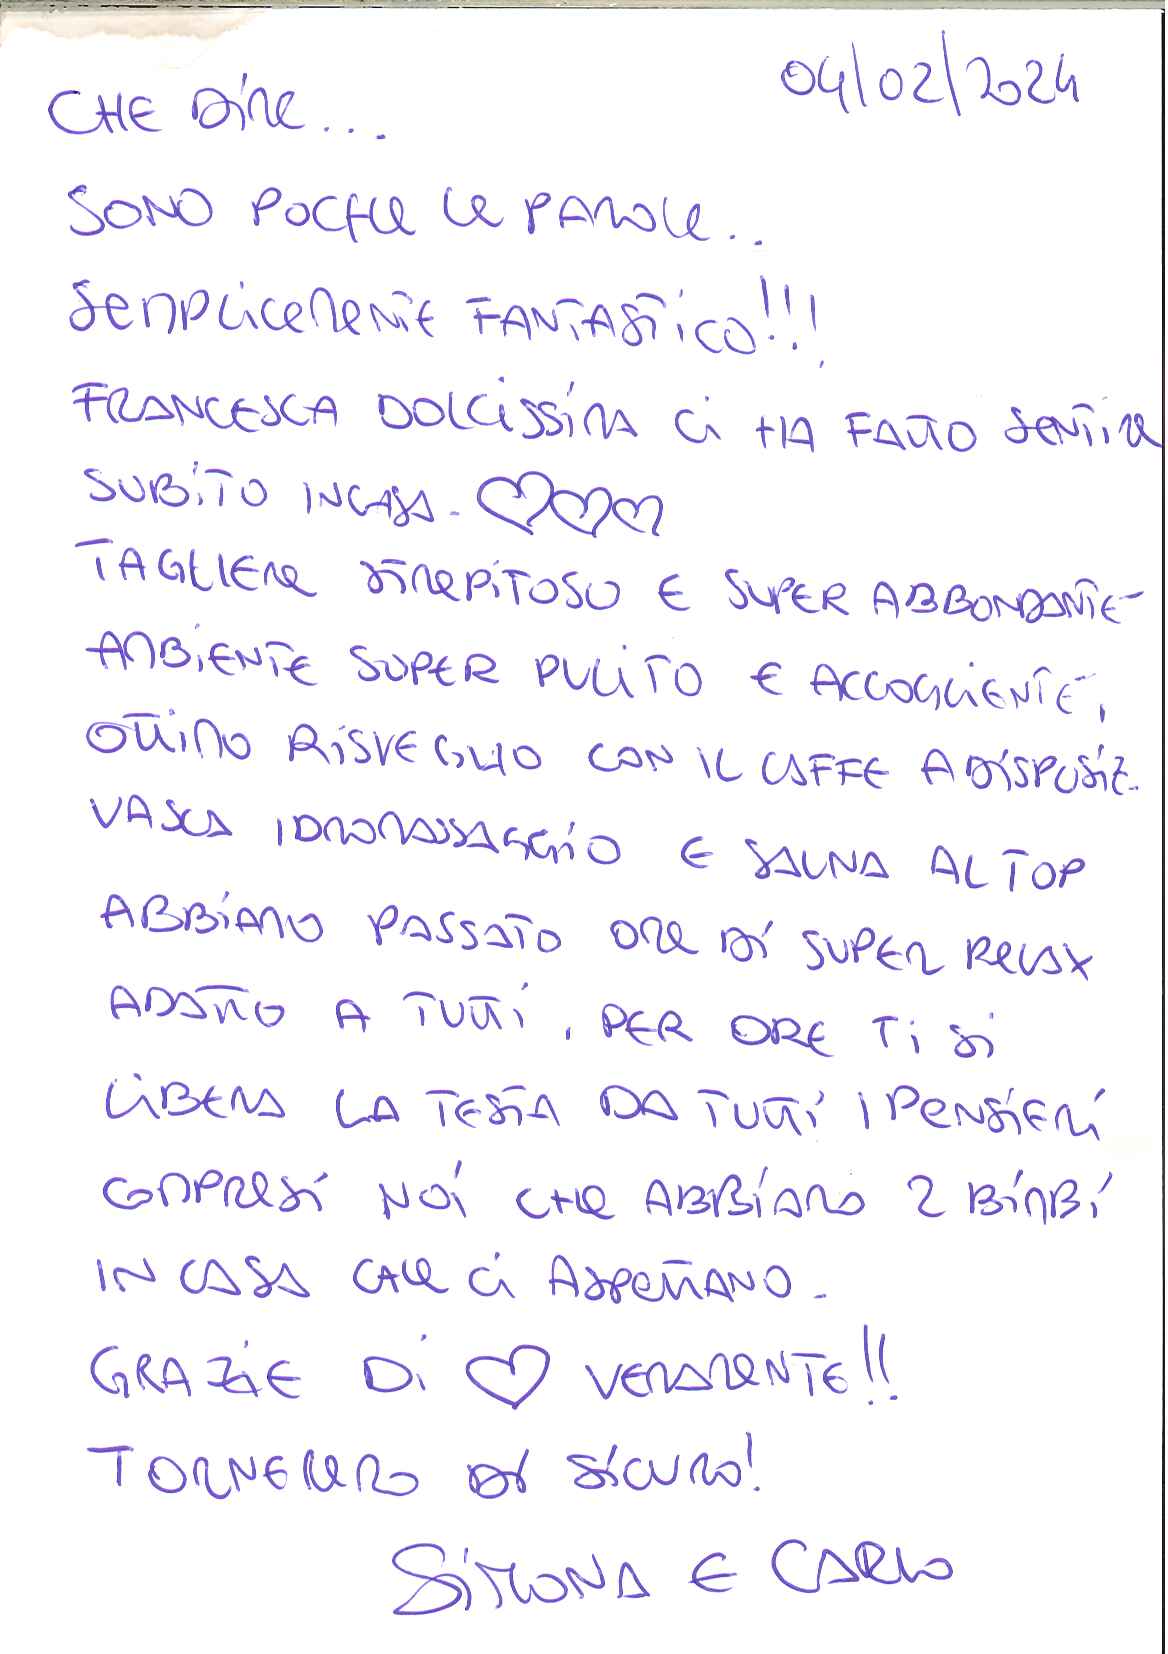 04/02/2024
CHE DIRE...
SONO POCHE LE PAROLE..
SEMPLICEMENTE FANTASTICO!!!
FRANCESCA DOLCISSIMA CI HA FATTO SENTIRE
SUBITO IN CASA. ♡♡♡
TAGLIERE STREPITOSO E SUPER ABBONDANTE
AMBIENTE SUPER PULITO E ACCOGLIENTE,
OTTIMO RISVEGLIO CON IL CAFFE A DISPOSIZ.
VASCA IDROMASSAGGIO E SAUNA AL TOP
ABBIAMO PASSATO ORE DI SUPER RELAX
ADATTO A TUTTI, PER ORE TI SI
LIBERA LA TESTA DA TUTTI I PENSIERI
COMPRESI NOI CHE ABBIAMO 2 BIMBI
IN CASA CHE CI ASPETTANO.
GRAZIE DI ♡ VERAMENTE!!
TORNEREMO DI SICURO!
SIMONA E CARLO